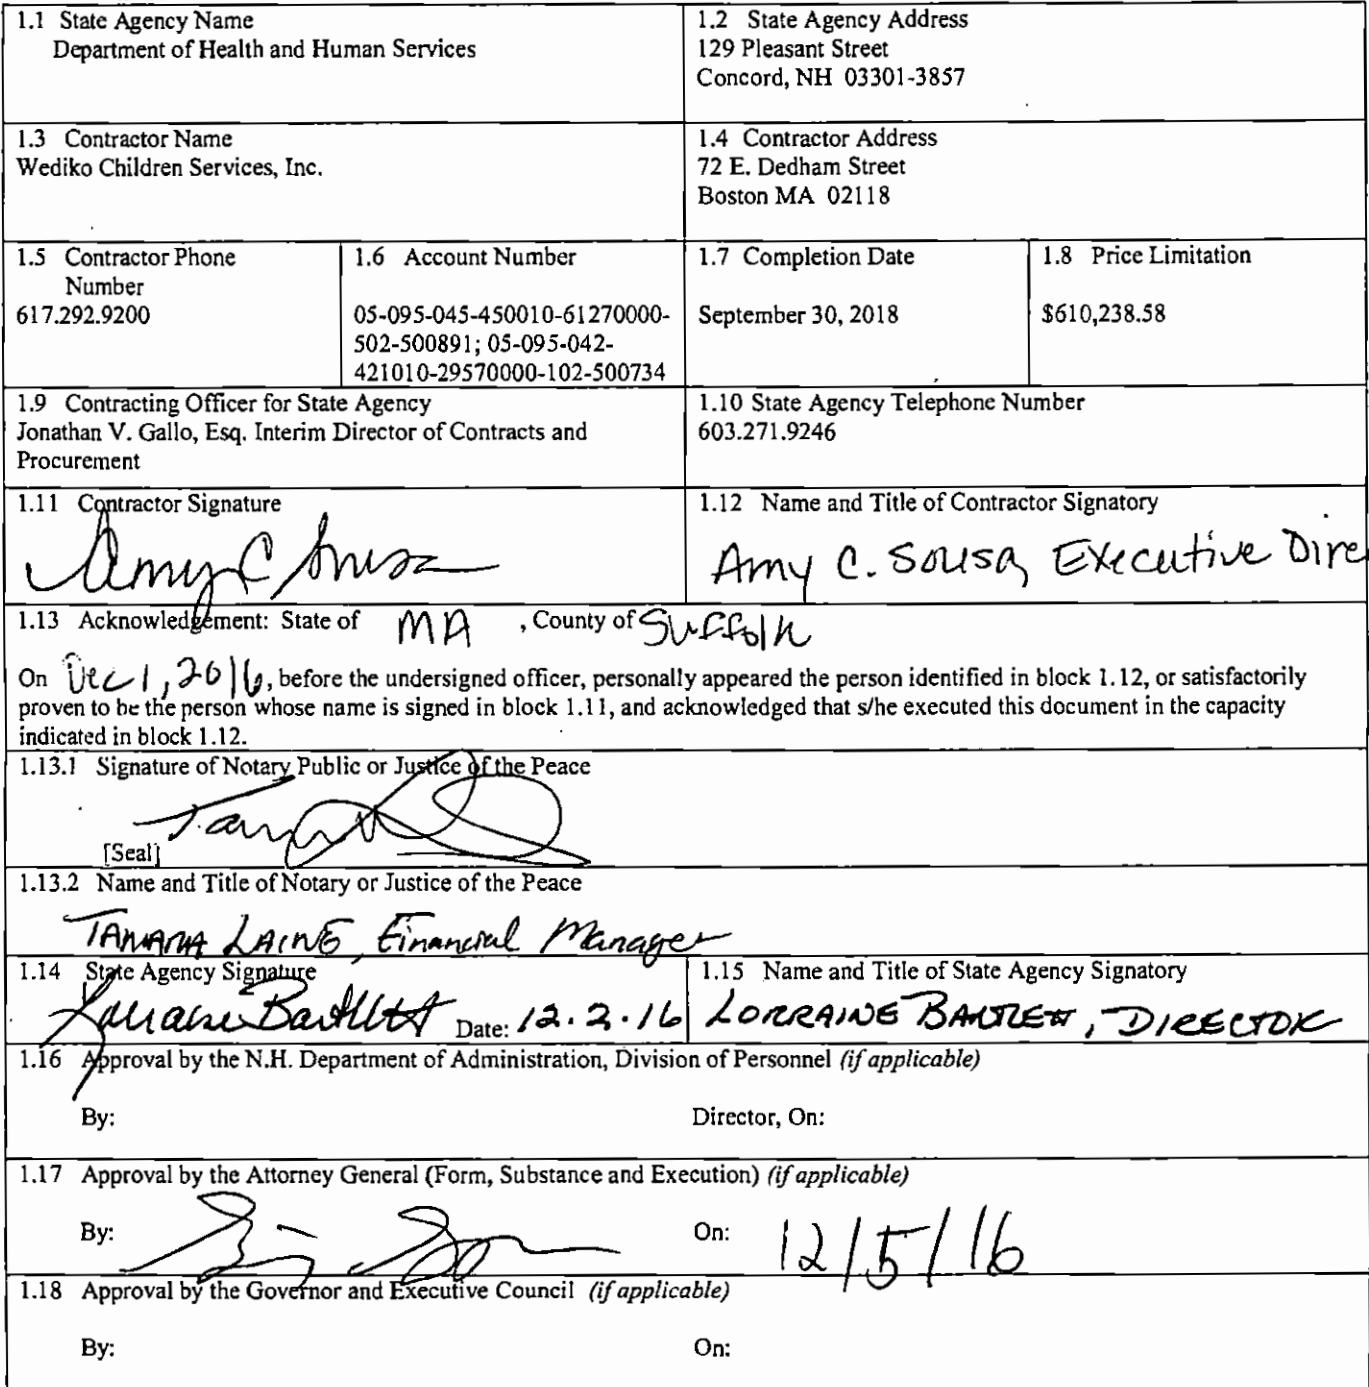 1.1 State Agency Name
Department of Health and Human Services
1.2 State Agency Address
129 Pleasant Street
Concord, NH 03301-3857
1.3 Contractor Name
Wediko Children Services, Inc.
1.4 Contractor Address
72 E. Dedham Street
Boston MA 02118
1.5 Contractor Phone
Number
617.292.9200
1.6 Account Number
05-095-045-450010-61270000-
502-500891; 05-095-042-
421010-29570000-102-500734
1.7 Completion Date
September 30, 2018
1.8 Price Limitation
$610,238.58
1.9 Contracting Officer for State Agency
Jonathan V. Gallo, Esq. Interim Director of Contracts and
Procurement
1.10 State Agency Telephone Number
603.271.9246
1.11 Contractor Signature
Amy C Sousa
1.12 Name and Title of Contractor Signatory
Amy C. Sousa, Executive Dire
1.13 Acknowledgement: State of MA , County of Suffolk
On Dec 1, 2016, before the undersigned officer, personally appeared the person identified in block 1.12, or satisfactorily
proven to be the person whose name is signed in block 1.11, and acknowledged that s/he executed this document in the capacity
indicated in block 1.12.
1.13.1 Signature of Notary Public or Justice of the Peace
[Seal]
1.13.2 Name and Title of Notary or Justice of the Peace
TAMARA LAING, Financial Manager
1.14 State Agency Signature
Lorraine Bartlett Date: 12.2.16
1.15 Name and Title of State Agency Signatory
LORRAINE BARTLETT, DIRECTOR
1.16 Approval by the N.H. Department of Administration, Division of Personnel (if applicable)
By: Director, On:
1.17 Approval by the Attorney General (Form, Substance and Execution) (if applicable)
By: On: 12/5/16
1.18 Approval by the Governor and Executive Council (if applicable)
By: On: